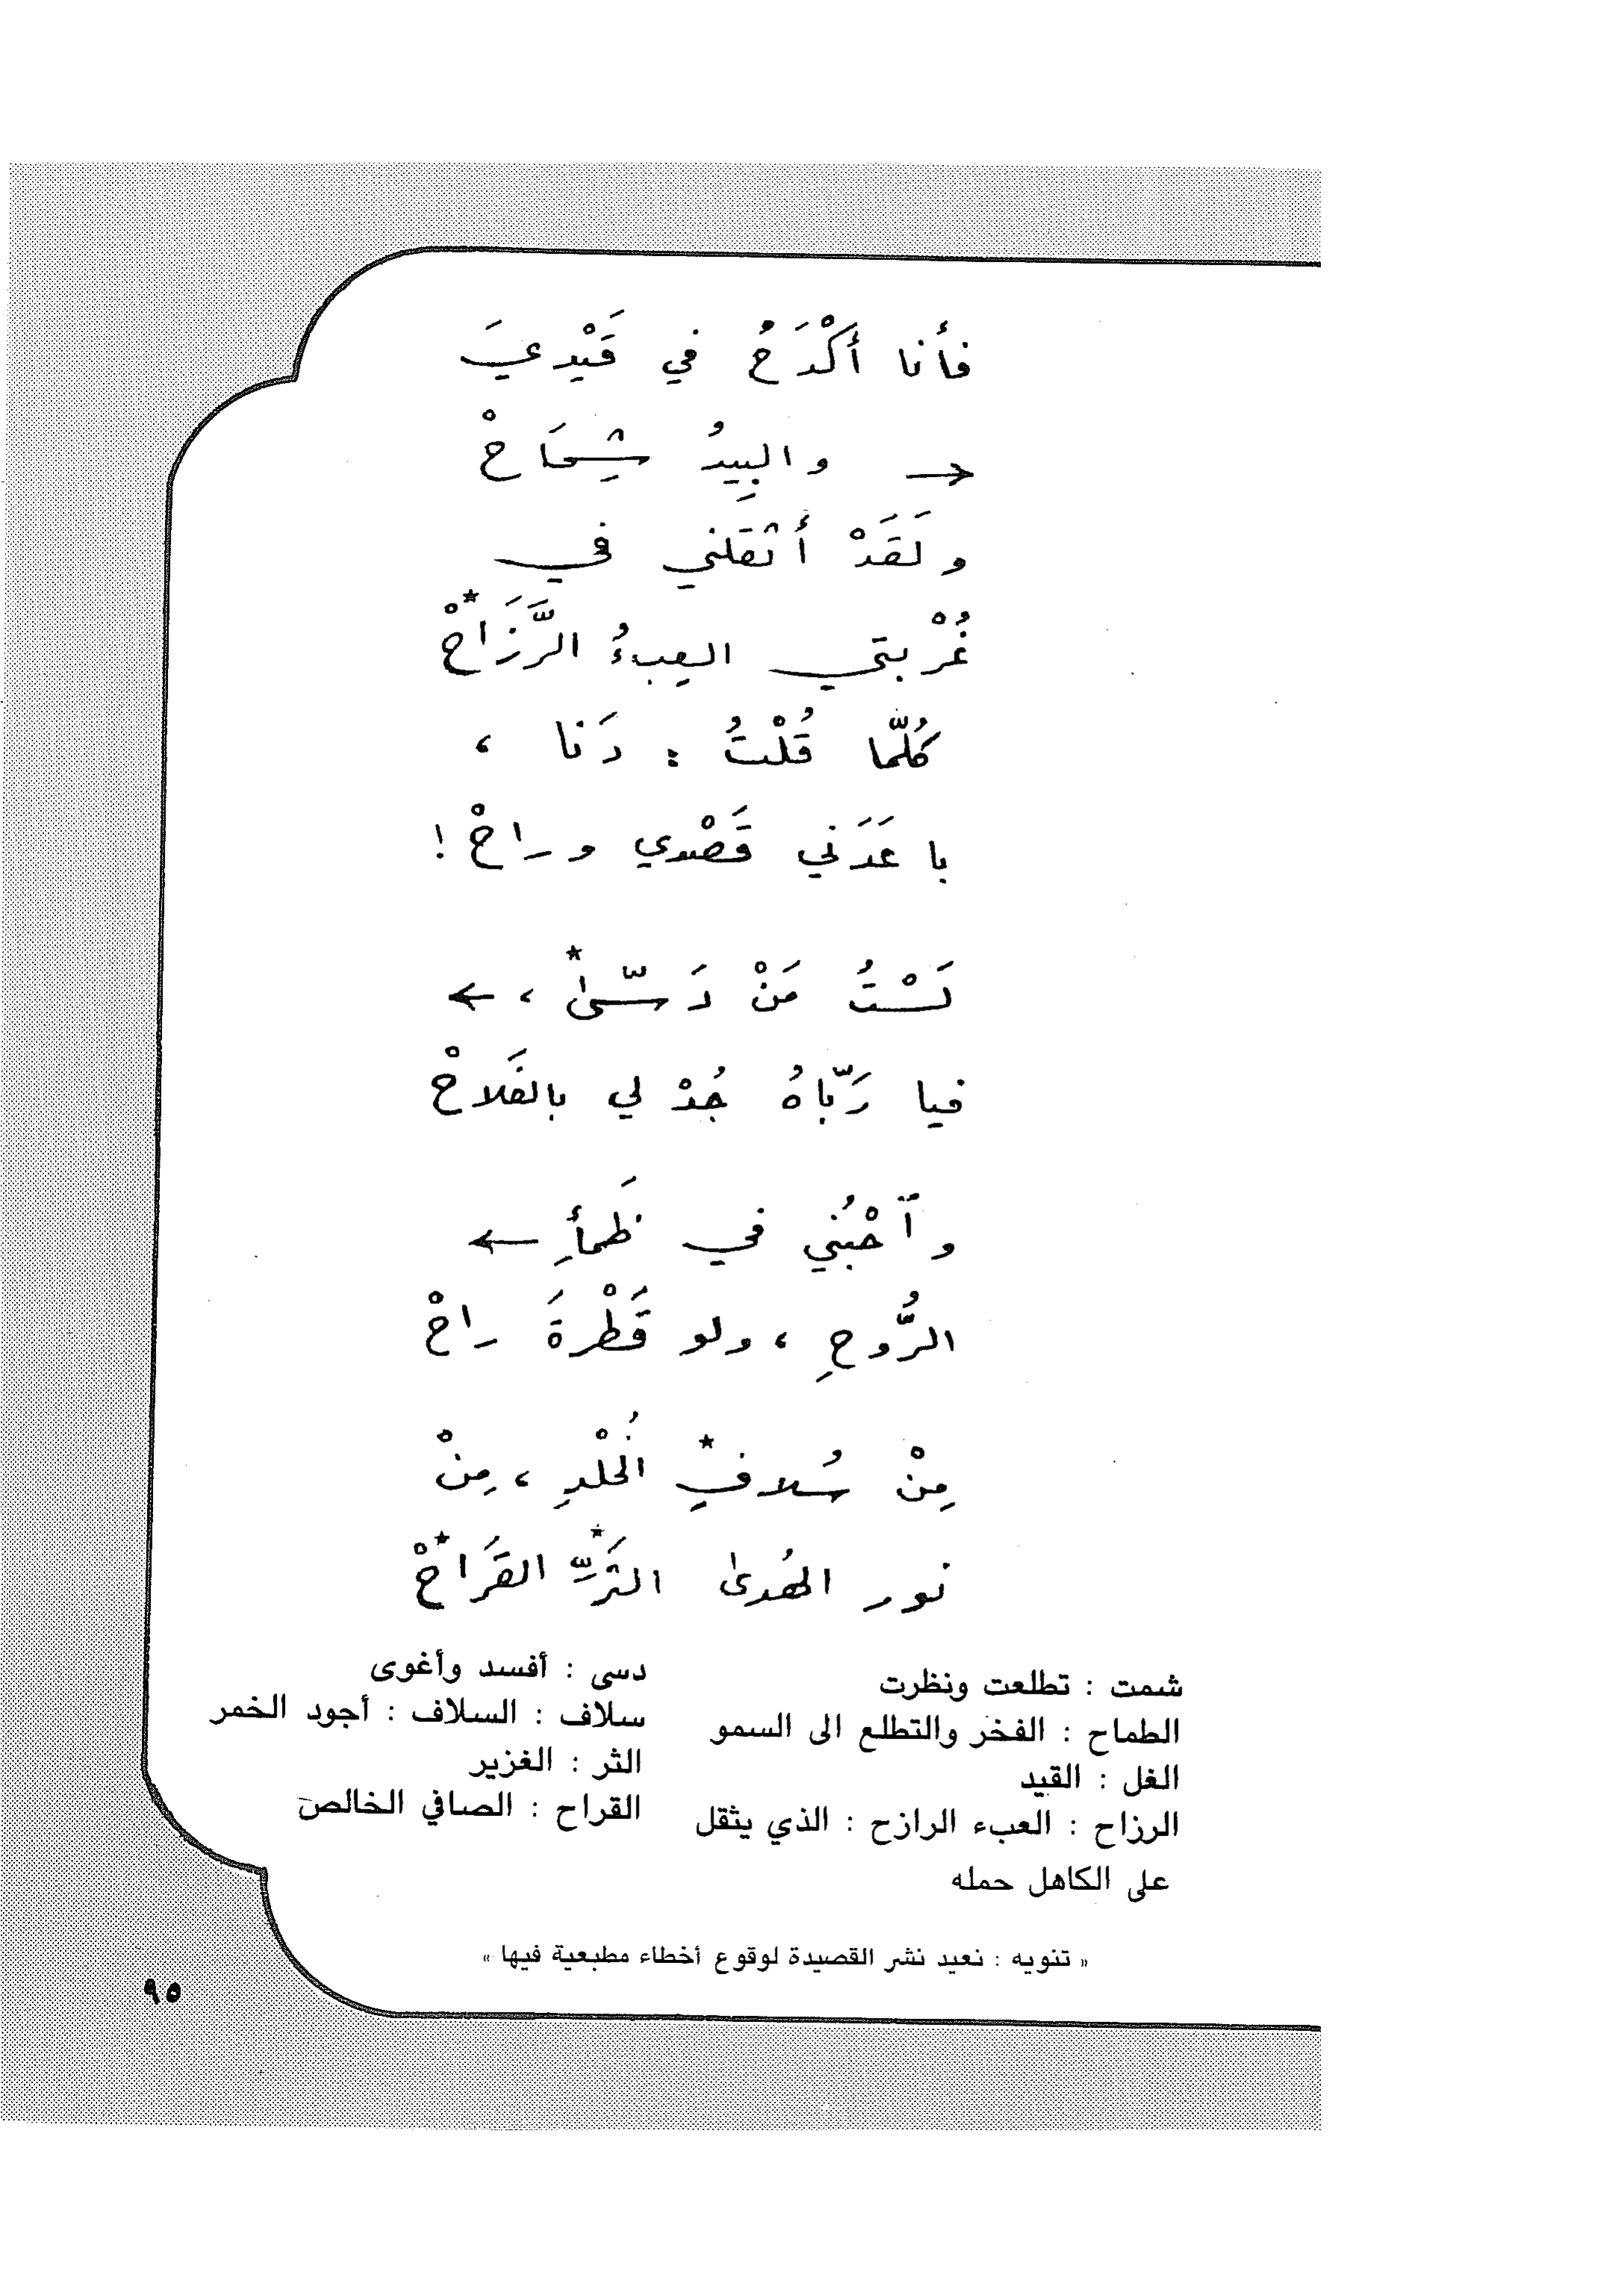 فأنا أَكْدَحُ في قَيْدِيَ
← والبِيدُ شِحَاحْ
ولَقَدْ أَثقلني في
غُرْبتي العِبءُ الرَّزَاحْ*
كُلّما قُلْتُ : دَنا ،
باعَدَني قَصْدي وراحْ !
لَسْتُ مَنْ دَسّىٰ* ، ←
فيا رَبّاهُ جُدْ لي بالفَلاحْ
وٱحْبُني في ظَمأِ ←
الرُّوحِ ، ولو قَطْرةَ راحْ
مِنْ سُلافِ* الخُلْدِ ، مِنْ
نور الهُدىٰ الثَّرِّ* القَرَاحْ*
شمت : تطلعت ونظرت
الطماح : الفخر والتطلع الى السمو
الغل : القيد
الرزاح : العبء الرازح : الذي يثقل
على الكاهل حمله
دسى : أفسد وأغوى
سلاف : السلاف : أجود الخمر
الثر : الغزير
القراح : الصافي الخالص
« تنويه : نعيد نشر القصيدة لوقوع أخطاء مطبعية فيها »
٩٥